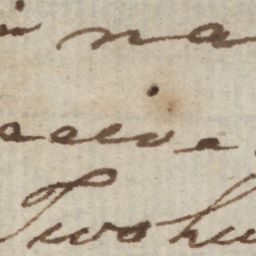 na
ceive
Two hu